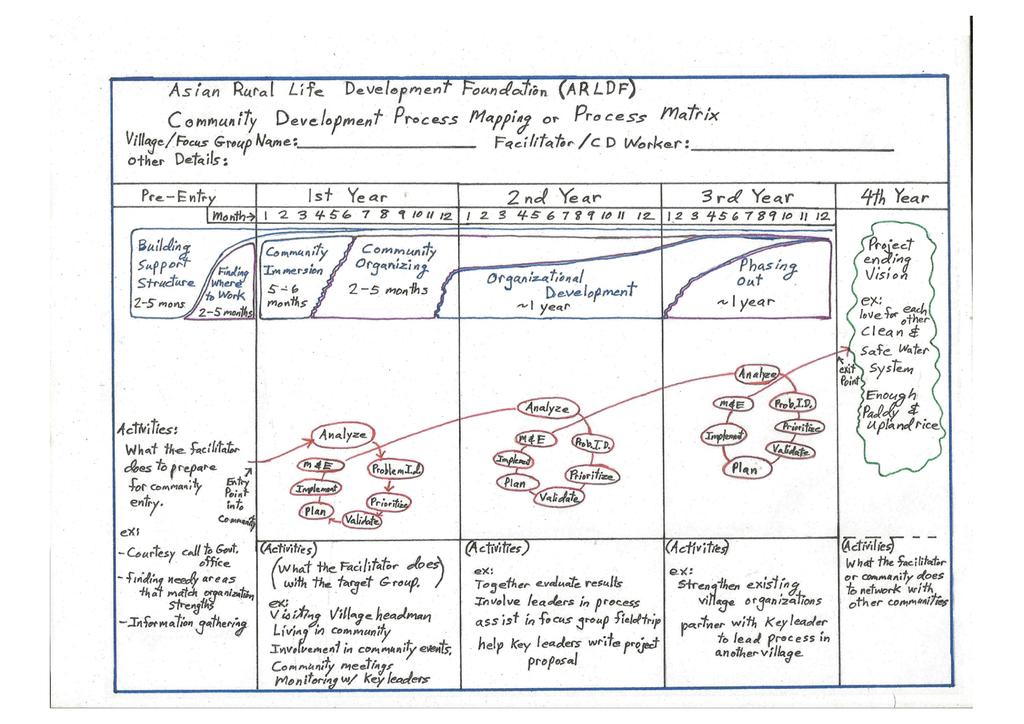 Asian Rural Life Development Foundation (ARLDF)
Community Development Process Mapping or Process Matrix
Village/Focus Group Name: Facilitator/CD Worker:
Other Details:
Pre-Entry
1st Year
2nd Year
3rd Year
4th Year
Month→
1 2 3 4 5 6 7 8 9 10 11 12
1 2 3 4 5 6 7 8 9 10 11 12
1 2 3 4 5 6 7 8 9 10 11 12
Building
Support
Structure
2-5 mons
Finding
Where
to Work
2-5 months
Community
Immersion
5-6
months
Community
Organizing
2-5 months
Organizational
Development
~1 year
Phasing
Out
~1 year
Project
ending
Vision
ex:
love for each
other
Clean &
Safe Water
System
Enough
Paddy &
Upland rice
exit
Point
Activities:
What the facilitator
does to prepare
for community
entry.
Entry
Point
into
Community
ex:
- Courtesy call to Govt.
office
- finding needy areas
that match organization
strengths
- Information gathering
Analyze
Problem I.d.
Prioritize
Validate
Plan
Implement
M&E
Analyze
Prob.I.D.
Prioritize
Validate
Plan
Implement
M&E
Analyze
Prob.I.D.
Prioritize
Validate
Plan
Implement
M&E
(Activities)
(What the Facilitator does
with the target Group.)
ex:
Visiting Village headman
Living in community
Involvement in community events.
Community meetings
Monitoring w/ Key leaders
(Activities)
ex:
Together evaluate results
Involve leaders in process
assist in focus group fieldtrip
help Key leaders write project
proposal
(Activities)
ex:
Strengthen existing
village organizations
partner with Key leader
to lead process in
another village
(Activities)
What the facilitator
or community does
to network with
other communities